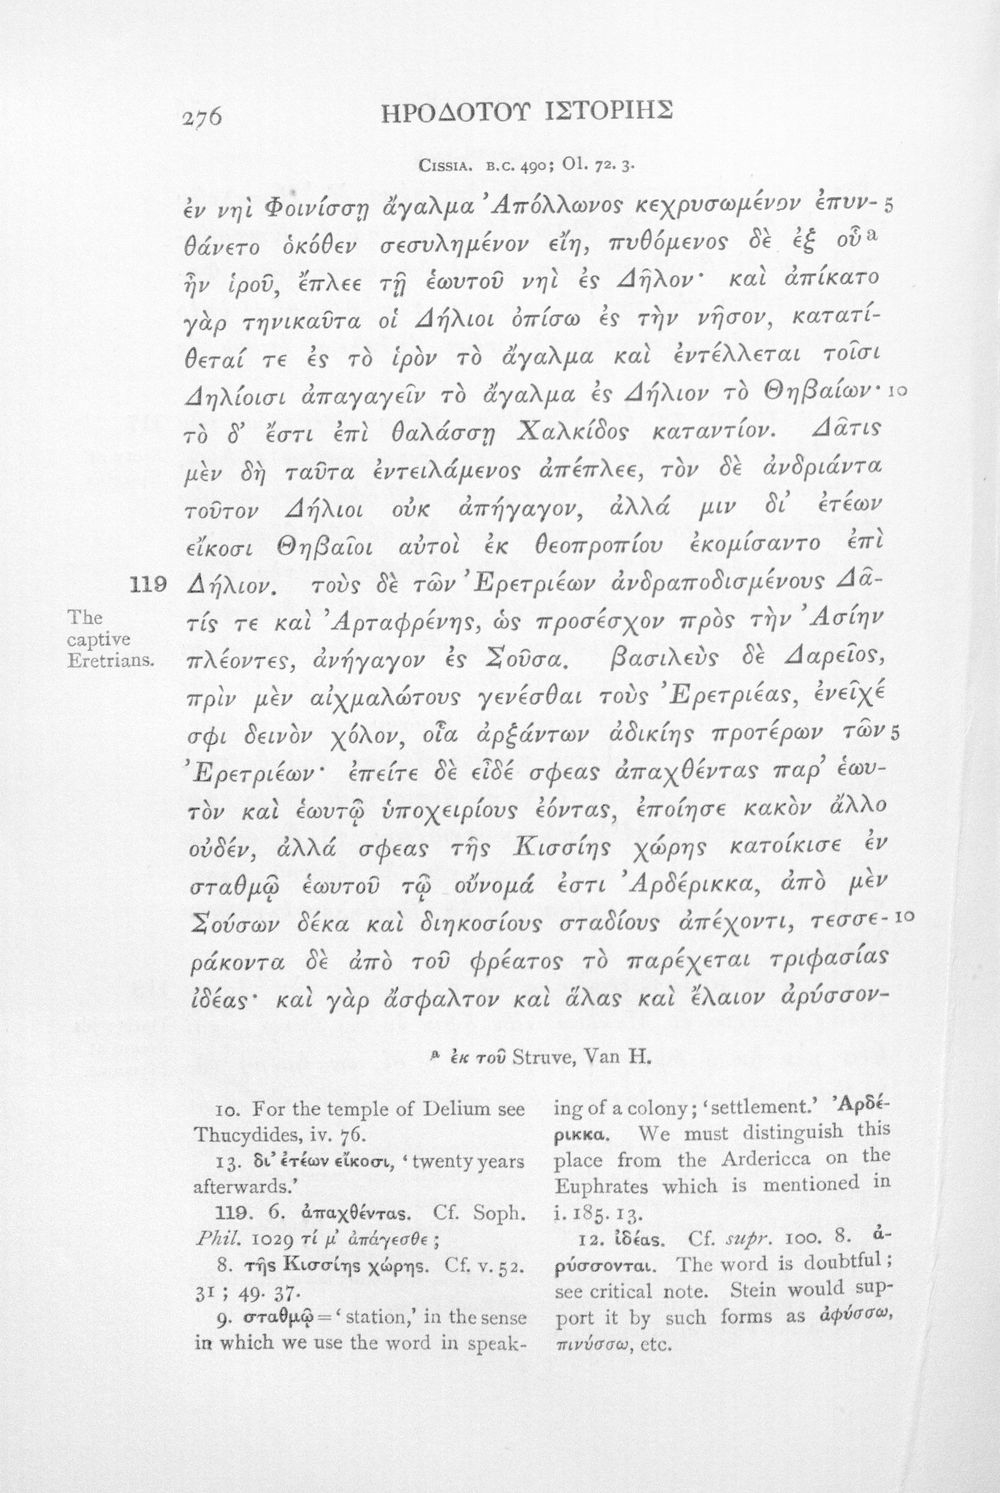 276
ΗΡΟΔΟΤΟΥ ΙΣΤΟΡΙΗΣ
CISSIA. B.C. 490; Ol. 72. 3.
ἐν νηὶ Φοινίσσῃ ἄγαλμα Ἀπόλλωνος κεχρυσωμένον ἐπυν- 5
θάνετο ὁκόθεν σεσυλημένον εἴη, πυθόμενος δὲ ἐξ οὗ a
ἦν ἱροῦ, ἔπλεε τῇ ἑωυτοῦ νηὶ ἐς Δῆλον· καὶ ἀπίκατο
γὰρ τηνικαῦτα οἱ Δήλιοι ὀπίσω ἐς τὴν νῆσον, κατατί-
θεταί τε ἐς τὸ ἱρὸν τὸ ἄγαλμα καὶ ἐντέλλεται τοῖσι
Δηλίοισι ἀπαγαγεῖν τὸ ἄγαλμα ἐς Δήλιον τὸ Θηβαίων· 10
τὸ δ’ ἔστι ἐπὶ θαλάσσῃ Χαλκίδος καταντίον. Δᾶτις
μὲν δὴ ταῦτα ἐντειλάμενος ἀπέπλεε, τὸν δὲ ἀνδριάντα
τοῦτον Δήλιοι οὐκ ἀπήγαγον, ἀλλά μιν δι’ ἐτέων
εἴκοσι Θηβαῖοι αὐτοὶ ἐκ θεοπροπίου ἐκομίσαντο ἐπὶ
119 Δήλιον. τοὺς δὲ τῶν Ἐρετριέων ἀνδραποδισμένους Δᾶ-
The
captive
Eretrians.
τίς τε καὶ Ἀρταφρένης, ὡς προσέσχον πρὸς τὴν Ἀσίην
πλέοντες, ἀνήγαγον ἐς Σοῦσα. βασιλεὺς δὲ Δαρεῖος,
πρὶν μὲν αἰχμαλώτους γενέσθαι τοὺς Ἐρετριέας, ἐνεῖχέ
σφι δεινὸν χόλον, οἷα ἀρξάντων ἀδικίης προτέρων τῶν 5
Ἐρετριέων· ἐπείτε δὲ εἶδέ σφεας ἀπαχθέντας παρ’ ἑωυ-
τὸν καὶ ἑωυτῷ ὑποχειρίους ἐόντας, ἐποίησε κακὸν ἄλλο
οὐδέν, ἀλλά σφεας τῆς Κισσίης χώρης κατοίκισε ἐν
σταθμῷ ἑωυτοῦ τῷ οὔνομά ἐστι Ἀρδέρικκα, ἀπὸ μὲν
Σούσων δέκα καὶ διηκοσίους σταδίους ἀπέχοντι, τεσσε- 10
ράκοντα δὲ ἀπὸ τοῦ φρέατος τὸ παρέχεται τριφασίας
ἰδέας· καὶ γὰρ ἄσφαλτον καὶ ἅλας καὶ ἔλαιον ἀρύσσον-
a ἐκ τοῦ Struve, Van H.
10. For the temple of Delium see
Thucydides, iv. 76.
13. δι’ ἐτέων εἴκοσι, ‘twenty years
afterwards.’
119. 6. ἀπαχθέντας. Cf. Soph.
Phil. 1029 τί μ’ ἀπάγεσθε;
8. τῆς Κισσίης χώρης. Cf. v. 52.
31; 49. 37.
9. σταθμῷ = ‘station,’ in the sense
in which we use the word in speak-
ing of a colony; ‘settlement.’ Ἀρδέ-
ρικκα. We must distinguish this
place from the Ardericca on the
Euphrates which is mentioned in
i. 185. 13.
12. ἰδέας. Cf. supr. 100. 8. ἀ-
ρύσσονται. The word is doubtful;
see critical note. Stein would sup-
port it by such forms as ἀφύσσω,
πινύσσω, etc.